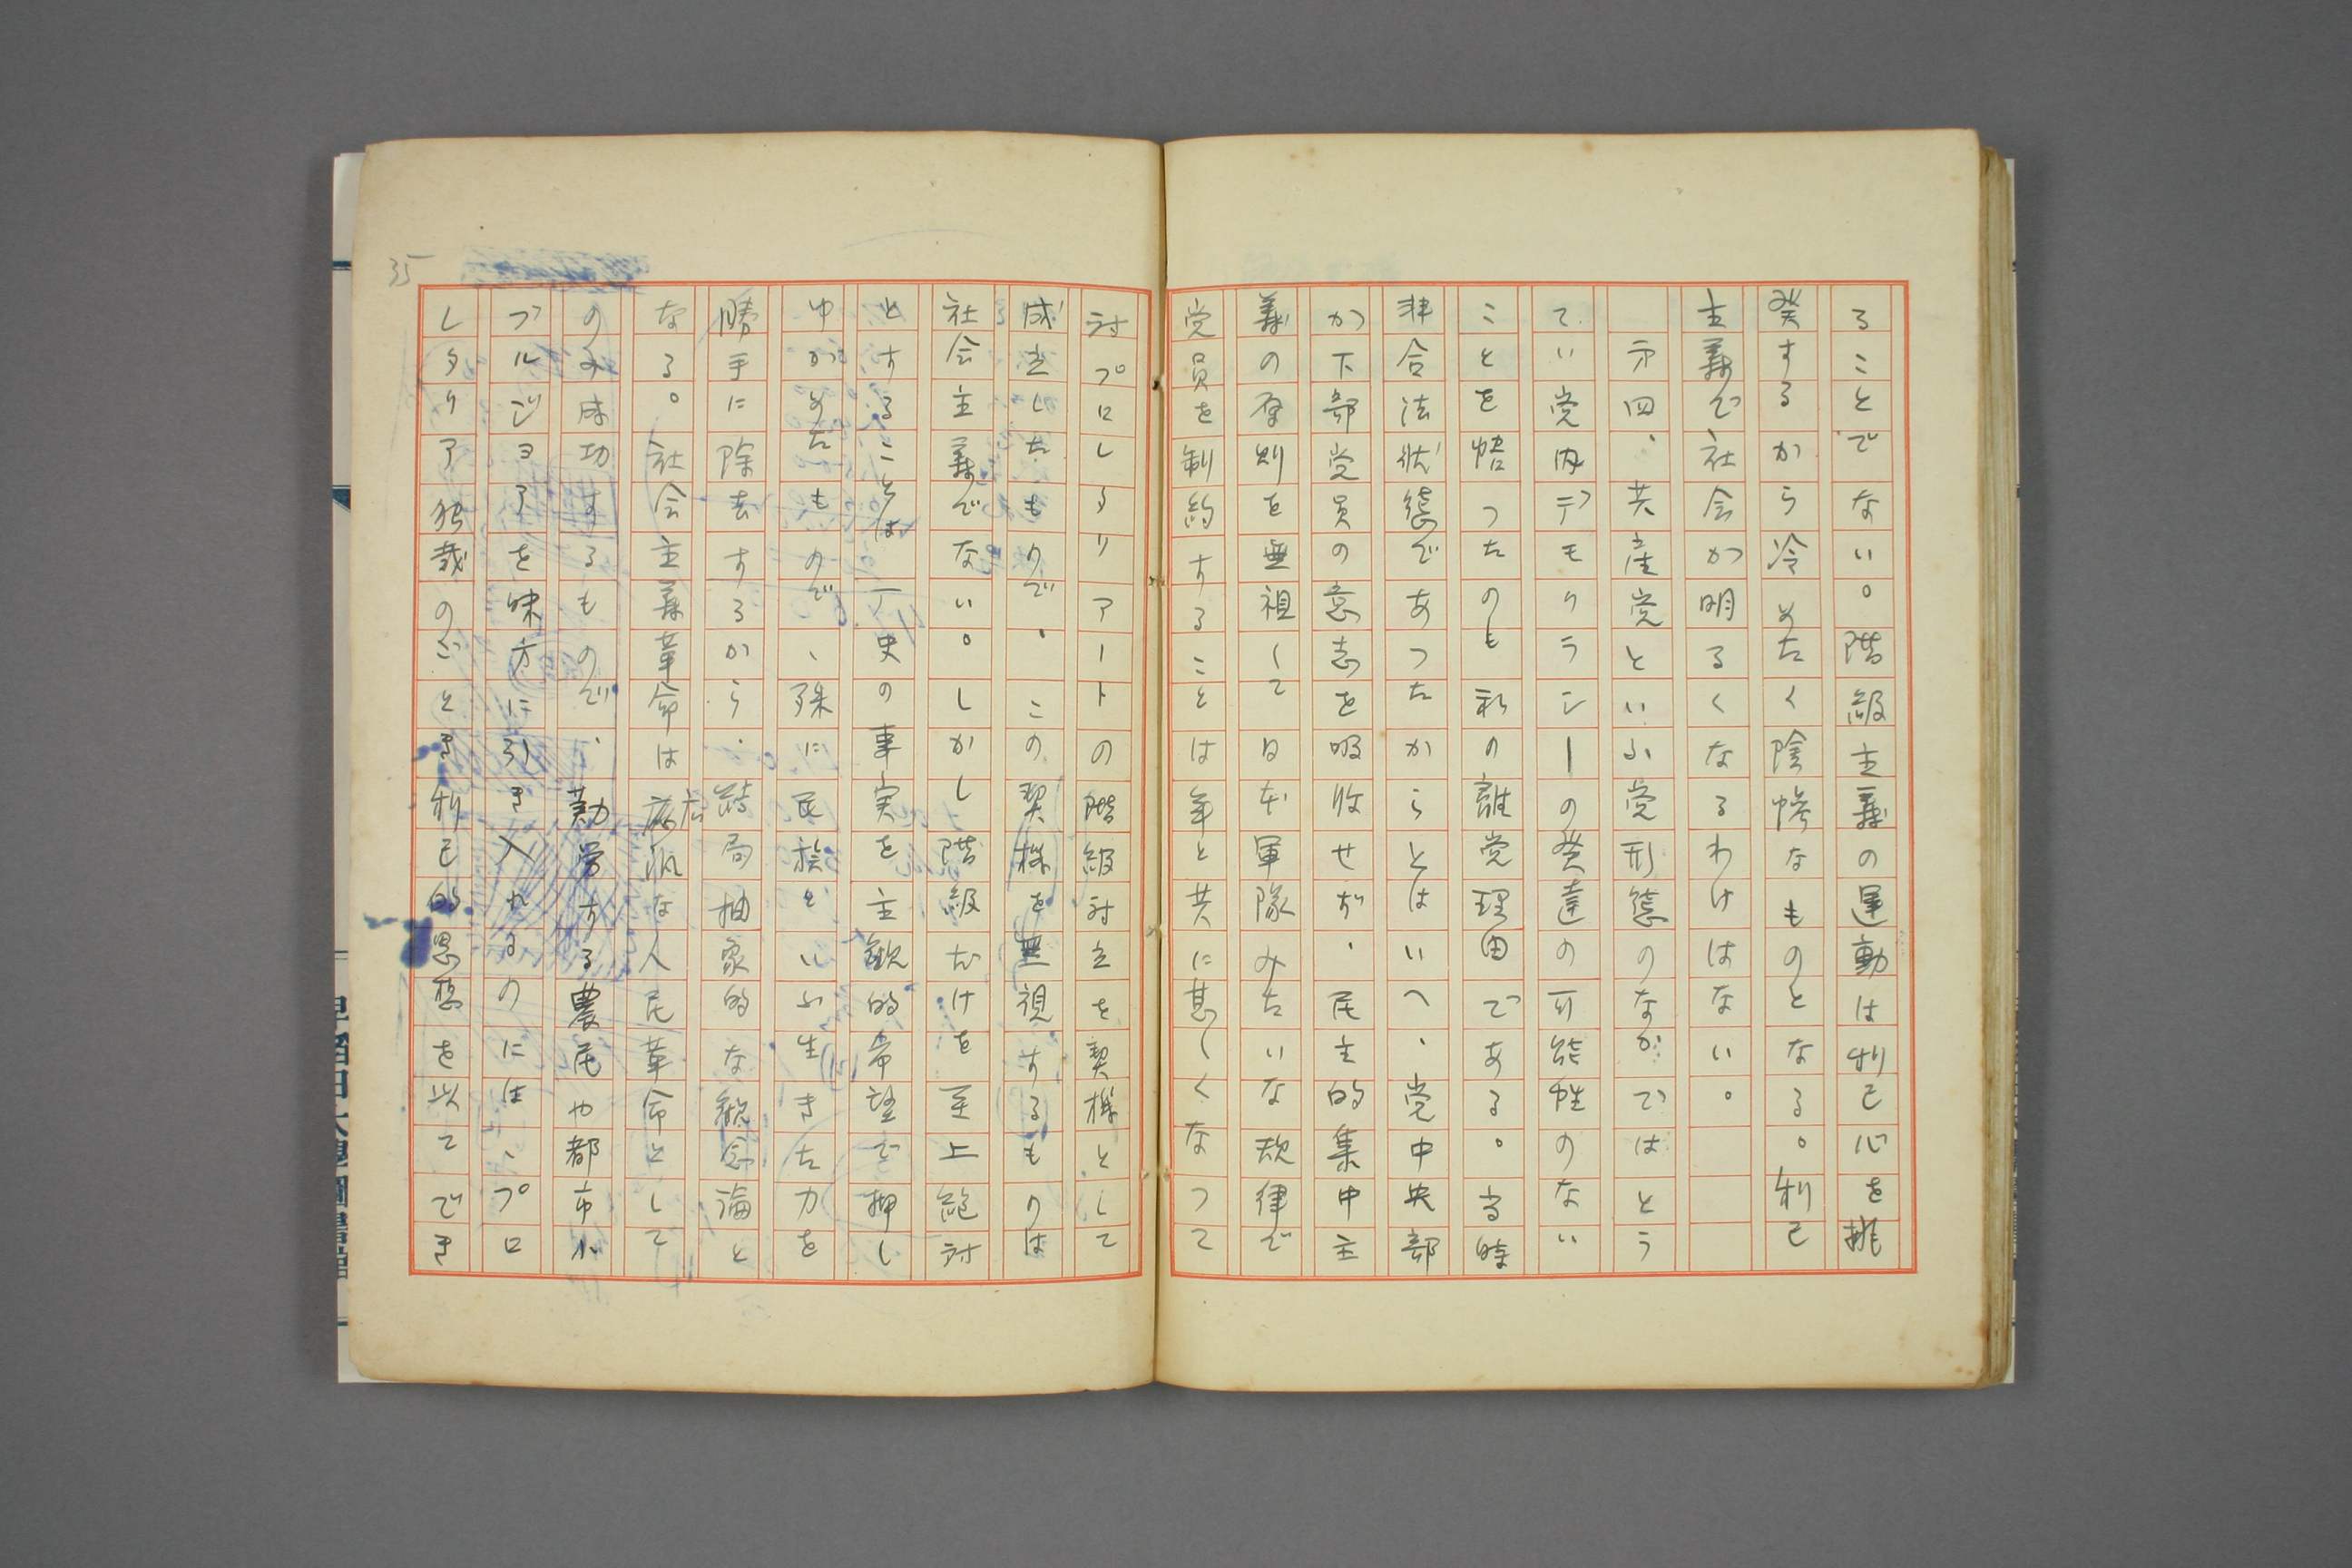 ることでない。階級主義の運動は利己心を挑
発するから冷めたく陰惨なものとなる。利己
主義で社会が明るくなるわけはない。
才四、共産党といふ党形態のなかではとう
てい党内デモクラシーの発達の可能性のない
ことを悟つたのも私の離党理由である。当時
非合法状態であつたからとはいへ、党中央部
が下部党員の意志を吸收せず、民主的集中主
義の原則を無視して日本軍隊みたいな規律で
党員を制約することは年と共に甚しくなつて
35
対プロレタリアートの階級対立を契機として
成立したもので、この契機を無視するものは
社会主義でない。しかし階級だけを至上絶対
とすることは、歴史の事実を主観的希望で押し
ゆがめたもので、殊に民族といふ生きた力を
勝手に除去するから、結局抽象的な観念論と
なる。社会主義革命は広汎な人民革命として
のみ成功するもので、勤労する農民や都市小
ブルジョアを味方に引き入れるのには、プロ
レタリア独裁のごとき利己的思想を以てでき